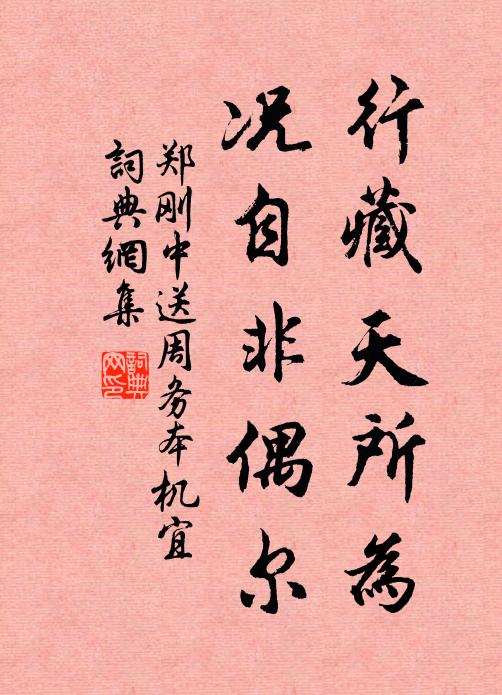 行藏天所為
况自非偶尔
郑刚中送周务本机宜
詞典網集
詞典網印